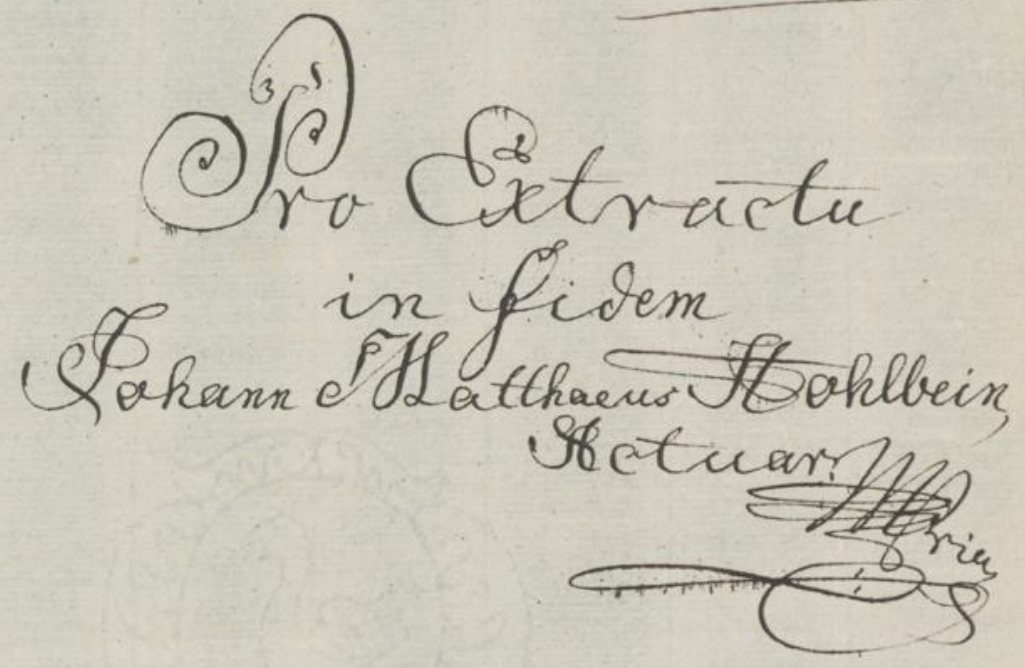 Pro Extractu
in fidem
Johann Matthaeus Hohlbein,
Actuar. Mpria